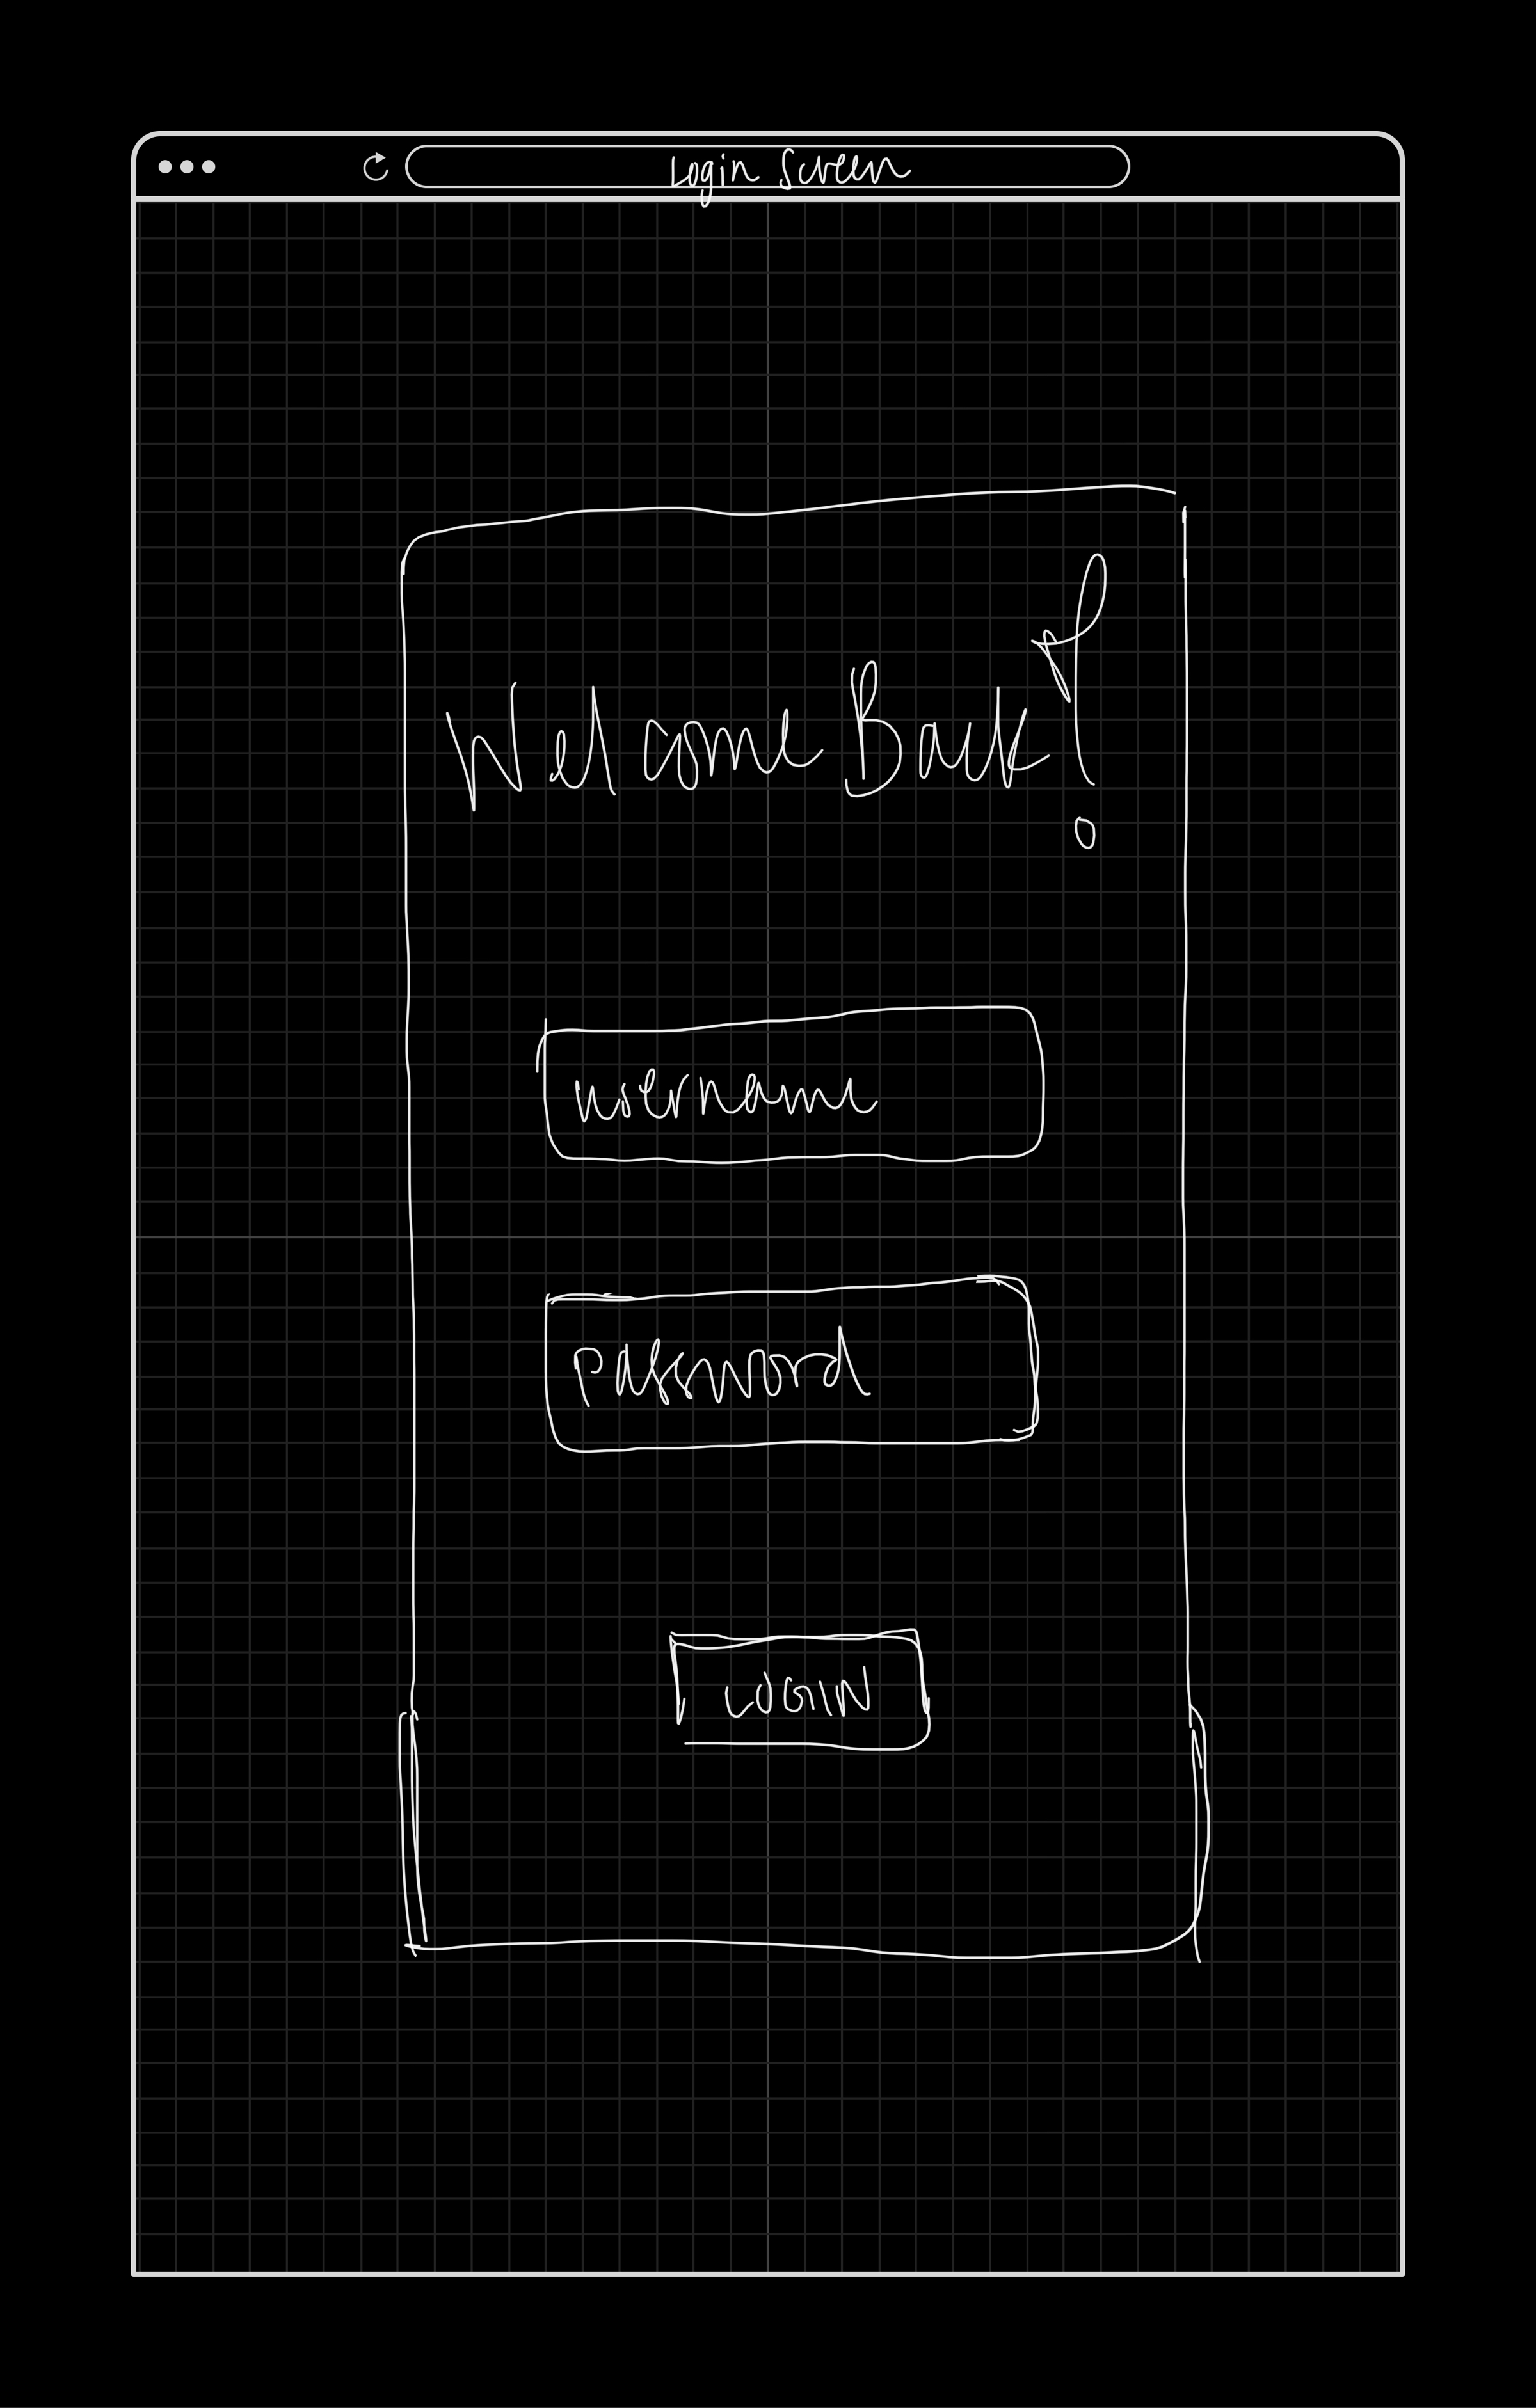 Login Screen
Welcome Back!
username
password
LOGIN